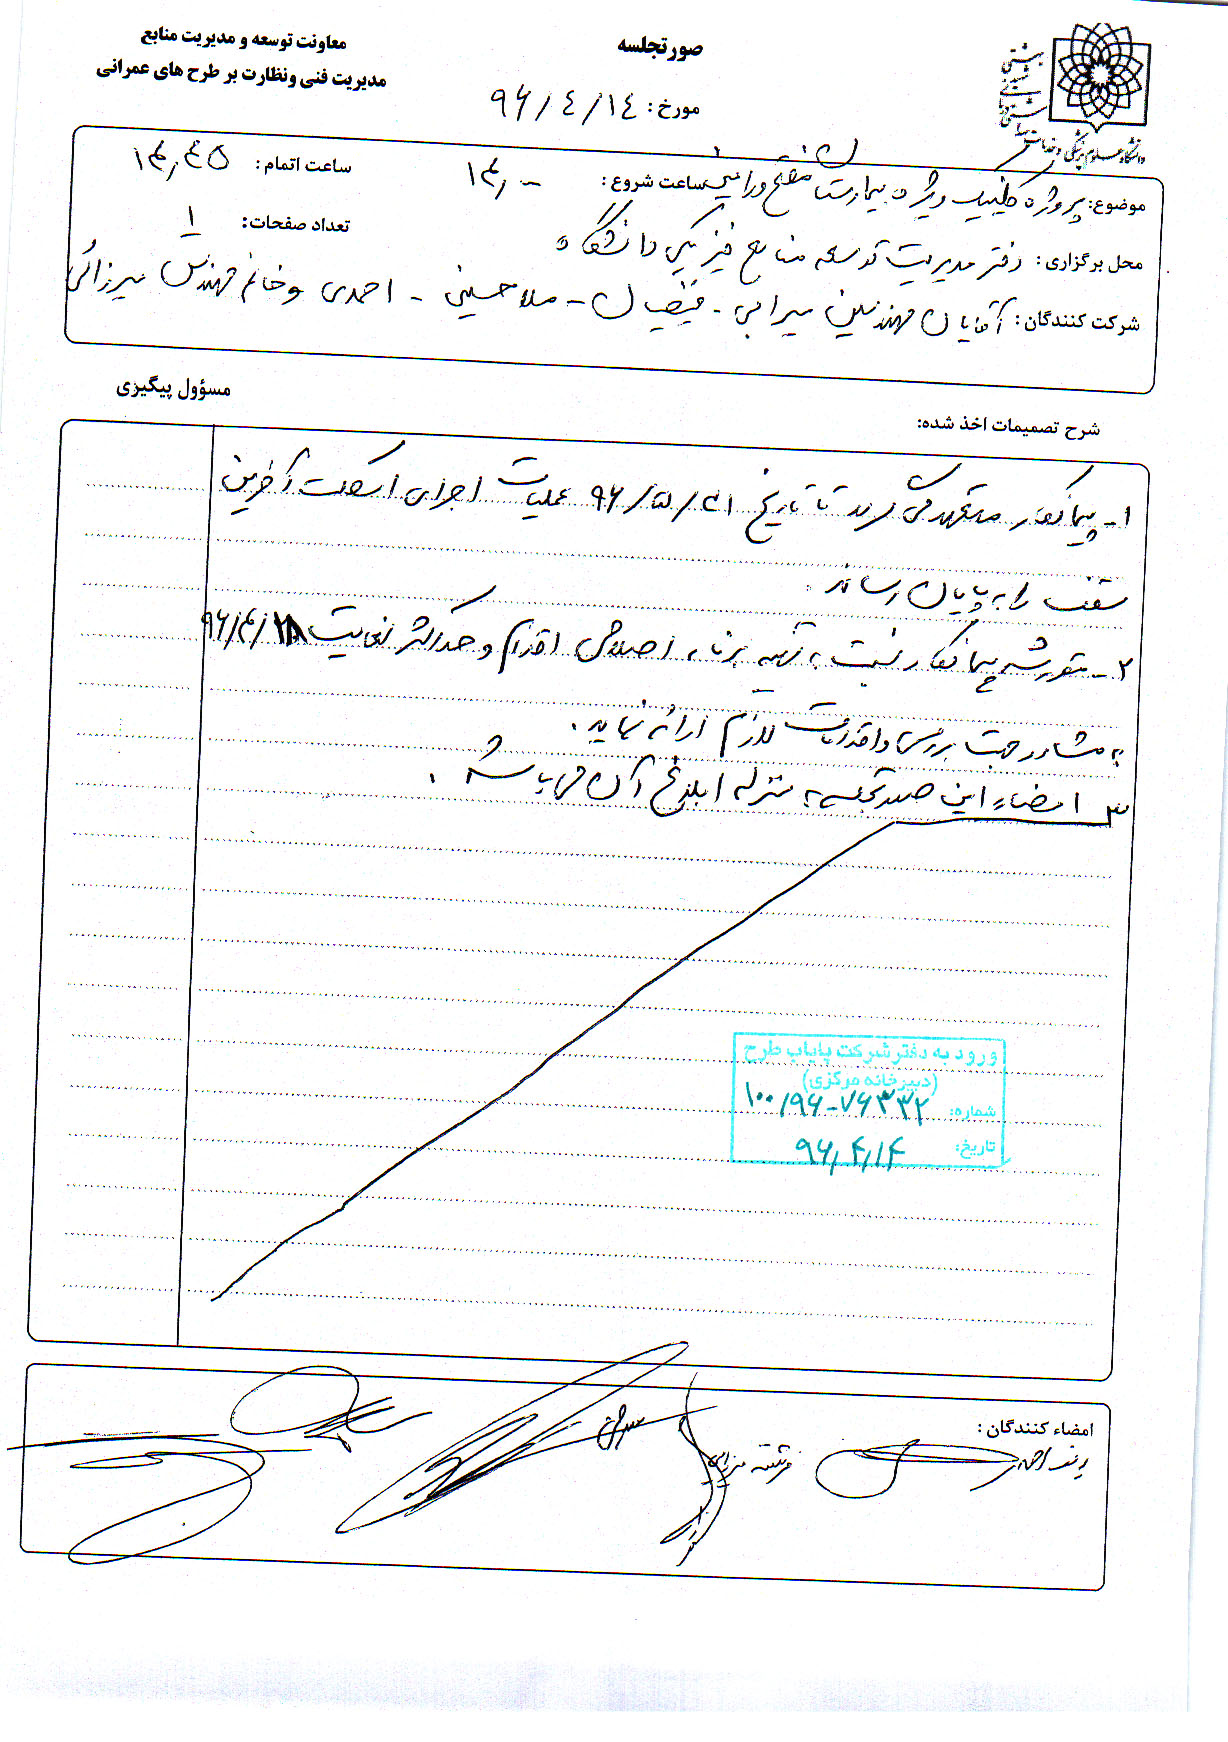 صورتجلسه
معاونت توسعه و مدیریت منابع
مدیریت فنی ونظارت بر طرح های عمرانی
مورخ: ۹۶/۴/۱۴
دانشگاه علوم پزشکی و خدمات
شهید بهشتی
موضوع: پروژه کلینیک ویژه بیمارستان مفتح ورامین ساعت شروع: ۱۴,۰۰ ساعت اتمام: ۱۴,۴۵
محل برگزاری: دفتر مدیریت توسعه منابع فیزیکی دانشگاه تعداد صفحات: ۱
شرکت کنندگان: آقایان مهندسین میرابی - فیضیان - ملاحسینی - احمدی و خانم مهندس میرزائی
شرح تصمیمات اخذ شده: مسؤول پیگیری
۱- پیمانکار متعهد می گردد تا تاریخ ۹۶/۵/۳۱ عملیات اجرای اسکلت آخرین
سقف را به پایان رساند.
۲- مقرر شد پیمانکار نسبت به تهیه برنامه اصلاحی اقدام و حداکثر لغایت ۹۶/۴/۲۸
به مشاور جهت بررسی و اقدامات لازم ارائه نماید.
۳ امضاء این صورتجلسه به منزله ابلاغ آن می باشد.
ورود به دفتر شرکت پایاب طرح
(دبیرخانه مرکزی)
شماره: ۱۰۰/۹۶-۷۶۳۳۲
تاریخ: ۹۶,۴,۱۴
امضاء کنندگان:
فرشته میرزایی